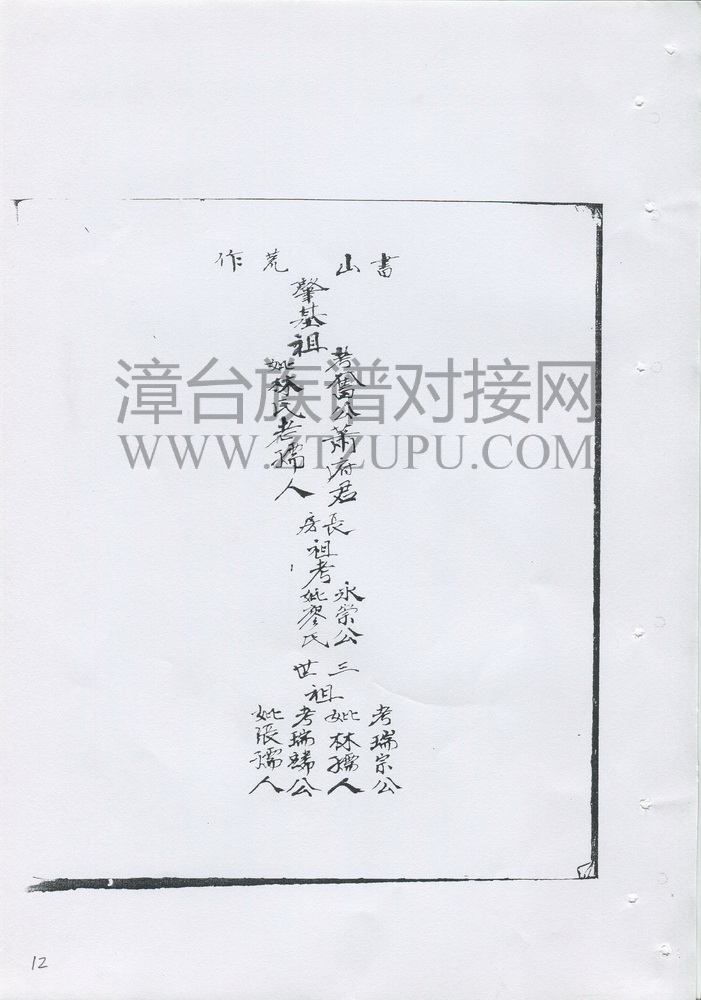 書山荒作
肇基祖
考舊公蕭府君
妣林氏老孺人
長房祖考
永崇公
妣廖氏
三世祖
考瑞宗公
妣林孺人
考瑞麟公
妣張孺人
漳台族谱对接网
WWW.ZTZUPU.COM
12